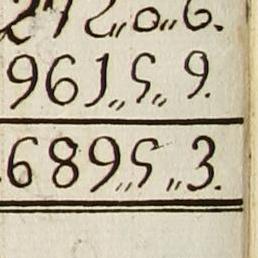 272„0„6.
961„5„9.
689„5„3.